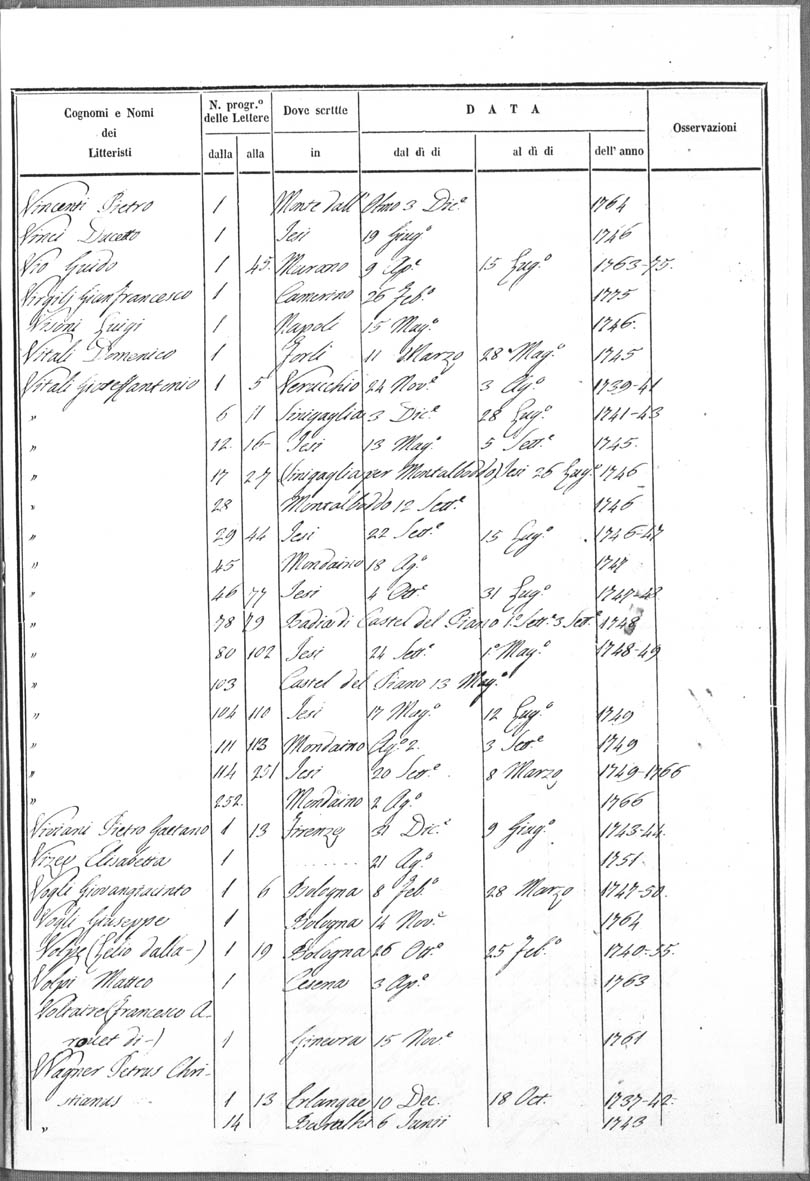 Cognomi e Nomi dei Litteristi | N. progr.º delle Lettere | Dove scritte | DATA | Osservazioni
dalla | alla | in | dal dì di | al dì di | dell'anno
Vincenti Pietro 1 Monte dall'Olmo 3 Dic.e 1764
Vinci Ducetto 1 Iesi 19 Giug.º 1746
Vio Guido 1 45. Murano 9 Ap.e 15 Lug.º 1763-75.
Virgilj Gianfrancesco 1 Camerino 26 Feb.º 1775
Visoni Luigi 1 Napoli 15 Mag.º 1746.
Vitali Domenico 1 Forlì 11 Marzo 28 Mag.º 1745
Vitali Gioseffantonio 1 5 Verucchio 24 Nov.e 3 Ag.º 1739-41
" 6 11 Sinigaglia 3 Dic.e 28 Lug.º 1741-43
" 12. 16- Iesi 13 Mag.º 5 Sett.e 1745.
" 17 27 (Sinigaglia per Montalboddo) Iesi 26 Lug.º 1746
" 28 Montalboddo 12 Sett.e 1746
" 29 44 Iesi 22 Sett.e 15 Lug.º 1746-47
" 45 Mondaino 18 Ag.º 1747
" 46 77 Iesi 4 Ott.e 31 Lug.º 1747-48
" 78 79 Badia di Castel del Piano 1.º Sett.e 3 Sett.e 1748
" 80 102 Iesi 24 Sett.e 1º Mag.º 1748-49
" 103 Castel del Piano 13 Mag.º
" 104 110 Iesi 17 Mag.º 12 Lug.º 1749
" 111 113 Mondaino Ag.º 2. 3 Sett.e 1749
" 114 251 Iesi 20 Sett.e 8 Marzo 1749-1766
" 252. Mondaino 2 Ag.º 1766
Viviani Pietro Gaetano 1 13 Firenze 31 Dic.e 9 Giug.º 1743-44.
Vizey Elisabetta 1 ........ 21 Ag.º 1751.
Vogli Giovangiacinto 1 6 Bologna 8 Feb.º 28 Marzo 1747-50.
Vogli Giuseppe 1 Bologna 14 Nov.e 1764
Volpe (Lelio dalla-) 1 19 Bologna 26 Ott.e 25 Feb.º 1740-55.
Volpi Matteo 1 Cesena 3 Ap.e 1763
Voltaire (Francesco A-
rouet di-) 1 Ginevra 15 Nov.e 1761
Wagner Petrus Chri-
stianus 1 13 Erlangae 10 Dec. 18 Oct. 1737-42.
" 14 6 Junii 1743